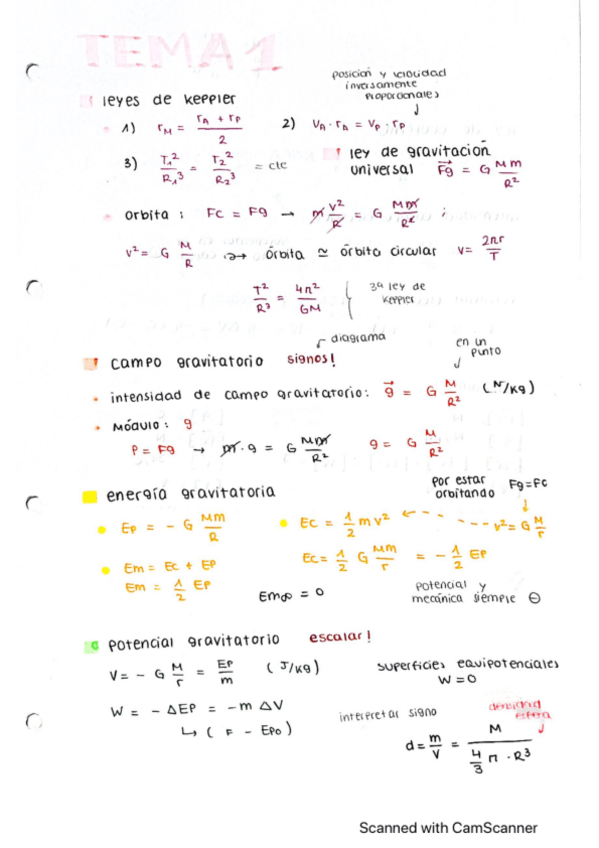 TEMA 1
posición y velocidad
inversamente
proporcionales
leyes de keppler
1) r_M = (r_A + r_P)/2
2) V_A · r_A = V_P · r_P
3) T₁²/R₁³ = T₂²/R₂³ = cte
ley de gravitación
universal F⃗g = G Mm/R²
orbita : Fc = Fg → m v²/R = G Mm/R² ;
v² = G M/R → órbita ≃ órbita circular v = 2πr/T
T²/R³ = 4π²/GM
3ª ley de
keppler
diagrama
campo gravitatorio signos!
en un
punto
intensidad de campo gravitatorio: g⃗ = G M/R² (N/kg)
Módulo: g
P = Fg → m·g = G Mm/R² g = G M/R²
energía gravitatoria
por estar
orbitando
Fg=Fc
Ep = - G Mm/R
Ec = 1/2 mv²
v² = G M/r
Em = Ec + Ep
Ec = 1/2 G Mm/r = - 1/2 Ep
Em = 1/2 Ep
Em∞ = 0
potencial y
mecánica siempre ⊖
potencial gravitatorio escalar!
V = - G M/r = Ep/m (J/kg)
superficies equipotenciales
W = 0
W = - ΔEP = -m ΔV
↳ ( F - Epo )
interpretar signo
densidad
esfera
d = m/V = M/(4/3 π · R³)
Scanned with CamScanner